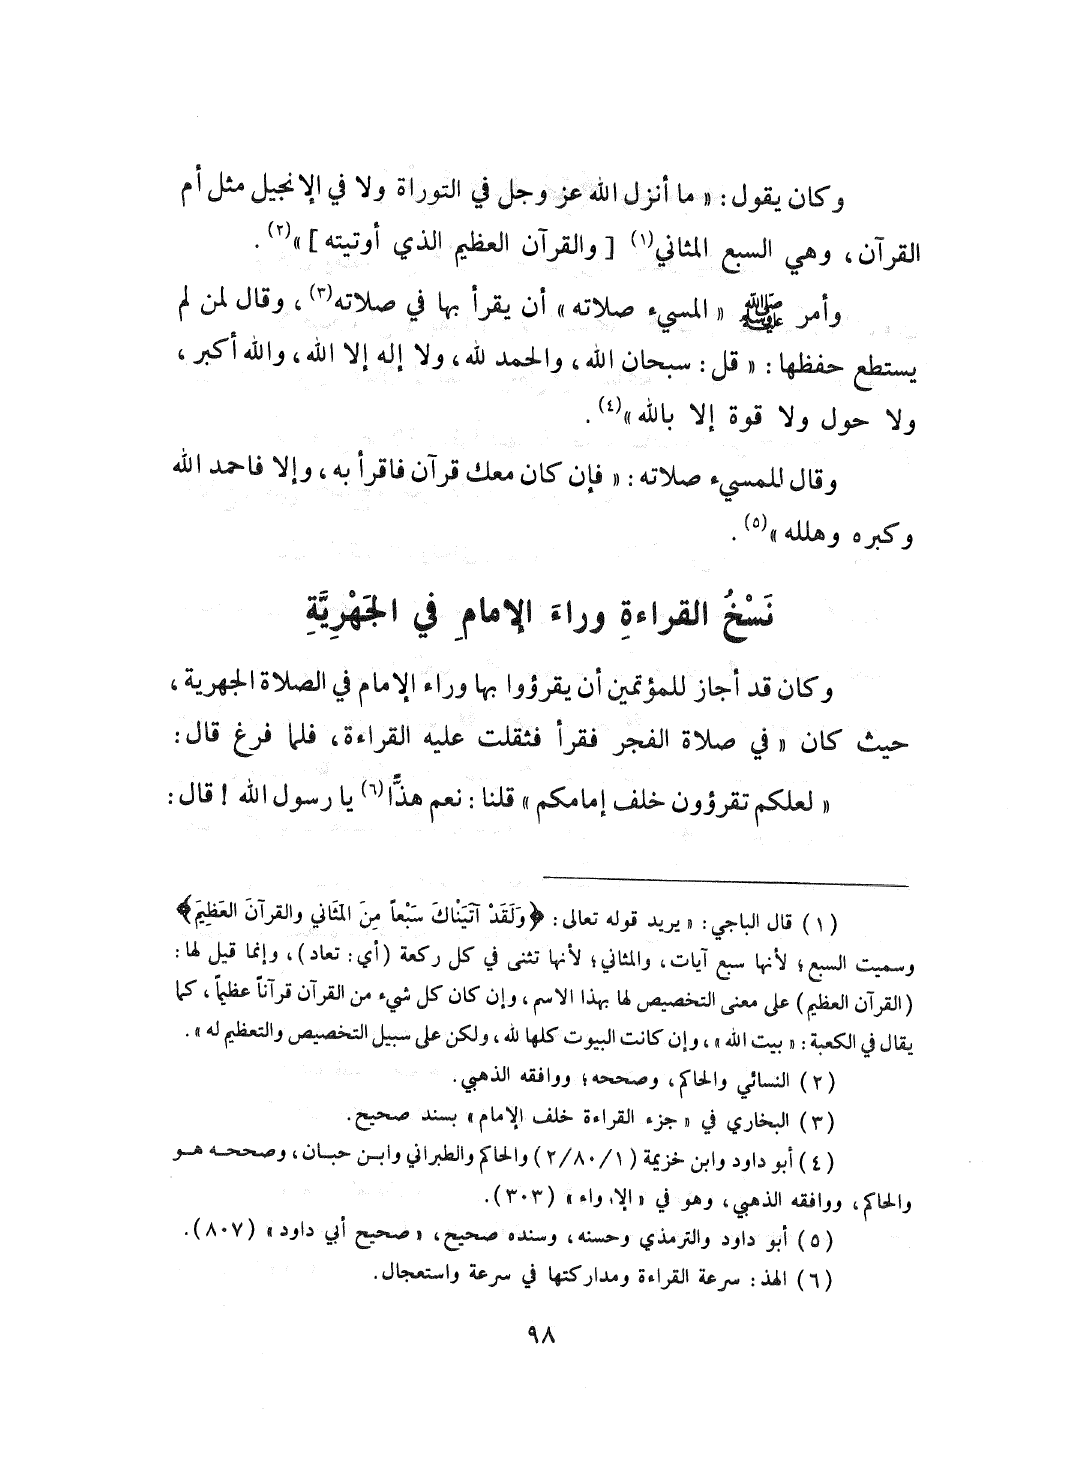 وكان يقول : « ما أنزل الله عز وجل في التوراة ولا في الإنجيل مثل أم
القرآن ، وهي السبع المثاني(١) [ والقرآن العظيم الذي أوتيته ] »(٢) .
وأمر ﷺ « المسيء صلاته » أن يقرأ بها في صلاته(٣) ، وقال لمن لم
يستطع حفظها : « قل : سبحان الله ، والحمد لله ، ولا إله إلا الله ، والله أكبر ،
ولا حول ولا قوة إلا بالله »(٤) .
وقال للمسيء صلاته : « فإن كان معك قرآن فاقرأ به ، وإلا فاحمد الله
وكبره وهلله »(٥) .
نَسْخُ القراءةِ وراءَ الإمامِ في الجَهْرِيَّةِ
وكان قد أجاز للمؤتمين أن يقرؤوا بها وراء الإمام في الصلاة الجهرية ،
حيث كان « في صلاة الفجر فقرأ فثقلت عليه القراءة ، فلما فرغ قال :
« لعلكم تقرؤون خلف إمامكم » قلنا : نعم هذًّا(٦) يا رسول الله ! قال :
(١) قال الباجي : « يريد قوله تعالى : ﴿وَلَقَدْ آتَيْنَاكَ سَبْعاً مِنَ المَثَاني والقرآنَ العَظِيمَ﴾
وسميت السبع ؛ لأنها سبع آيات ، والمثاني ؛ لأنها تثنى في كل ركعة (أي : تعاد) ، وإنما قيل لها :
(القرآن العظيم) على معنى التخصيص لها بهذا الاسم ، وإن كان كل شيء من القرآن قرآناً عظيماً ، كما
يقال في الكعبة : « بيت الله » ، وإن كانت البيوت كلها لله ، ولكن على سبيل التخصيص والتعظيم له » .
(٢) النسائي والحاكم ، وصححه ؛ ووافقه الذهبي .
(٣) البخاري في « جزء القراءة خلف الإمام » بسند صحيح .
(٤) أبو داود وابن خزيمة (١/٨٠/٢) والحاكم والطبراني وابن حبان ، وصححه هو
والحاكم ، ووافقه الذهبي ، وهو في « الإرواء » (٣٠٣) .
(٥) أبو داود والترمذي وحسنه ، وسنده صحيح ، « صحيح أبي داود » (٨٠٧) .
(٦) الهذ : سرعة القراءة ومداركتها في سرعة واستعجال .
٩٨